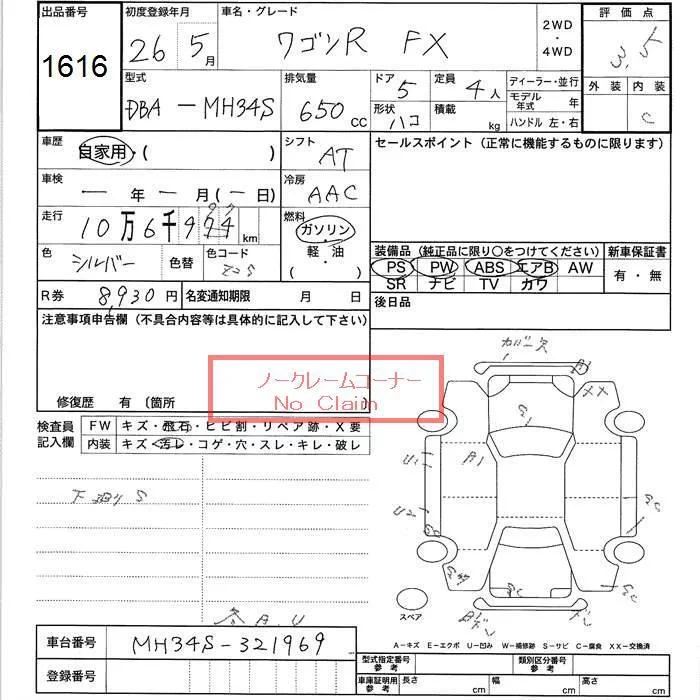 出品番号 初度登録年月 車名・グレード 2WD・4WD 評価点
1616 26 5月 ワゴンR FX 3.5
型式 排気量 ドア 5 定員 4人 ディーラー・並行 外装 内装
DBA-MH34S 650cc 形状 ハコ 積載 kg モデル年式 年 C
ハンドル 左・右
車歴 自家用・( ) シフト AT セールスポイント(正常に機能するものに限ります)
車検 ー年ー月(ー日) 冷房 AAC
走行 10万6千974km 燃料 ガソリン・軽・油・( )
色 シルバー 色替 色コード
装備品(純正品に限り○をつけてください) 新車保証書
PS PW ABS エアB AW 有・無
SR ナビ TV カワ
R券 8,930円 名変通知期限 月 日 後日品
注意事項申告欄(不具合内容等は具体的に記入して下さい)
ノークレームコーナー
No Claim
修復歴 有 〔箇所
検査員記入欄 FW キズ・飛石・ヒビ割・リペア跡・X要
内装 キズ・汚レ・コゲ・穴・スレ・キレ・破レ
下廻りS
カバー欠
A1
XX
S
U1
A1
U2
SC
SC
SC
スペア
A-キズ E-エクボ U-凹み W-補修跡 S-サビ C-腐食 XX-交換済
各A.U
車台番号 MH34S-321969
登録番号
型式指定番号 参考 類別区分番号 参考
車庫証明用 参考 長さ cm 幅 cm 高さ cm